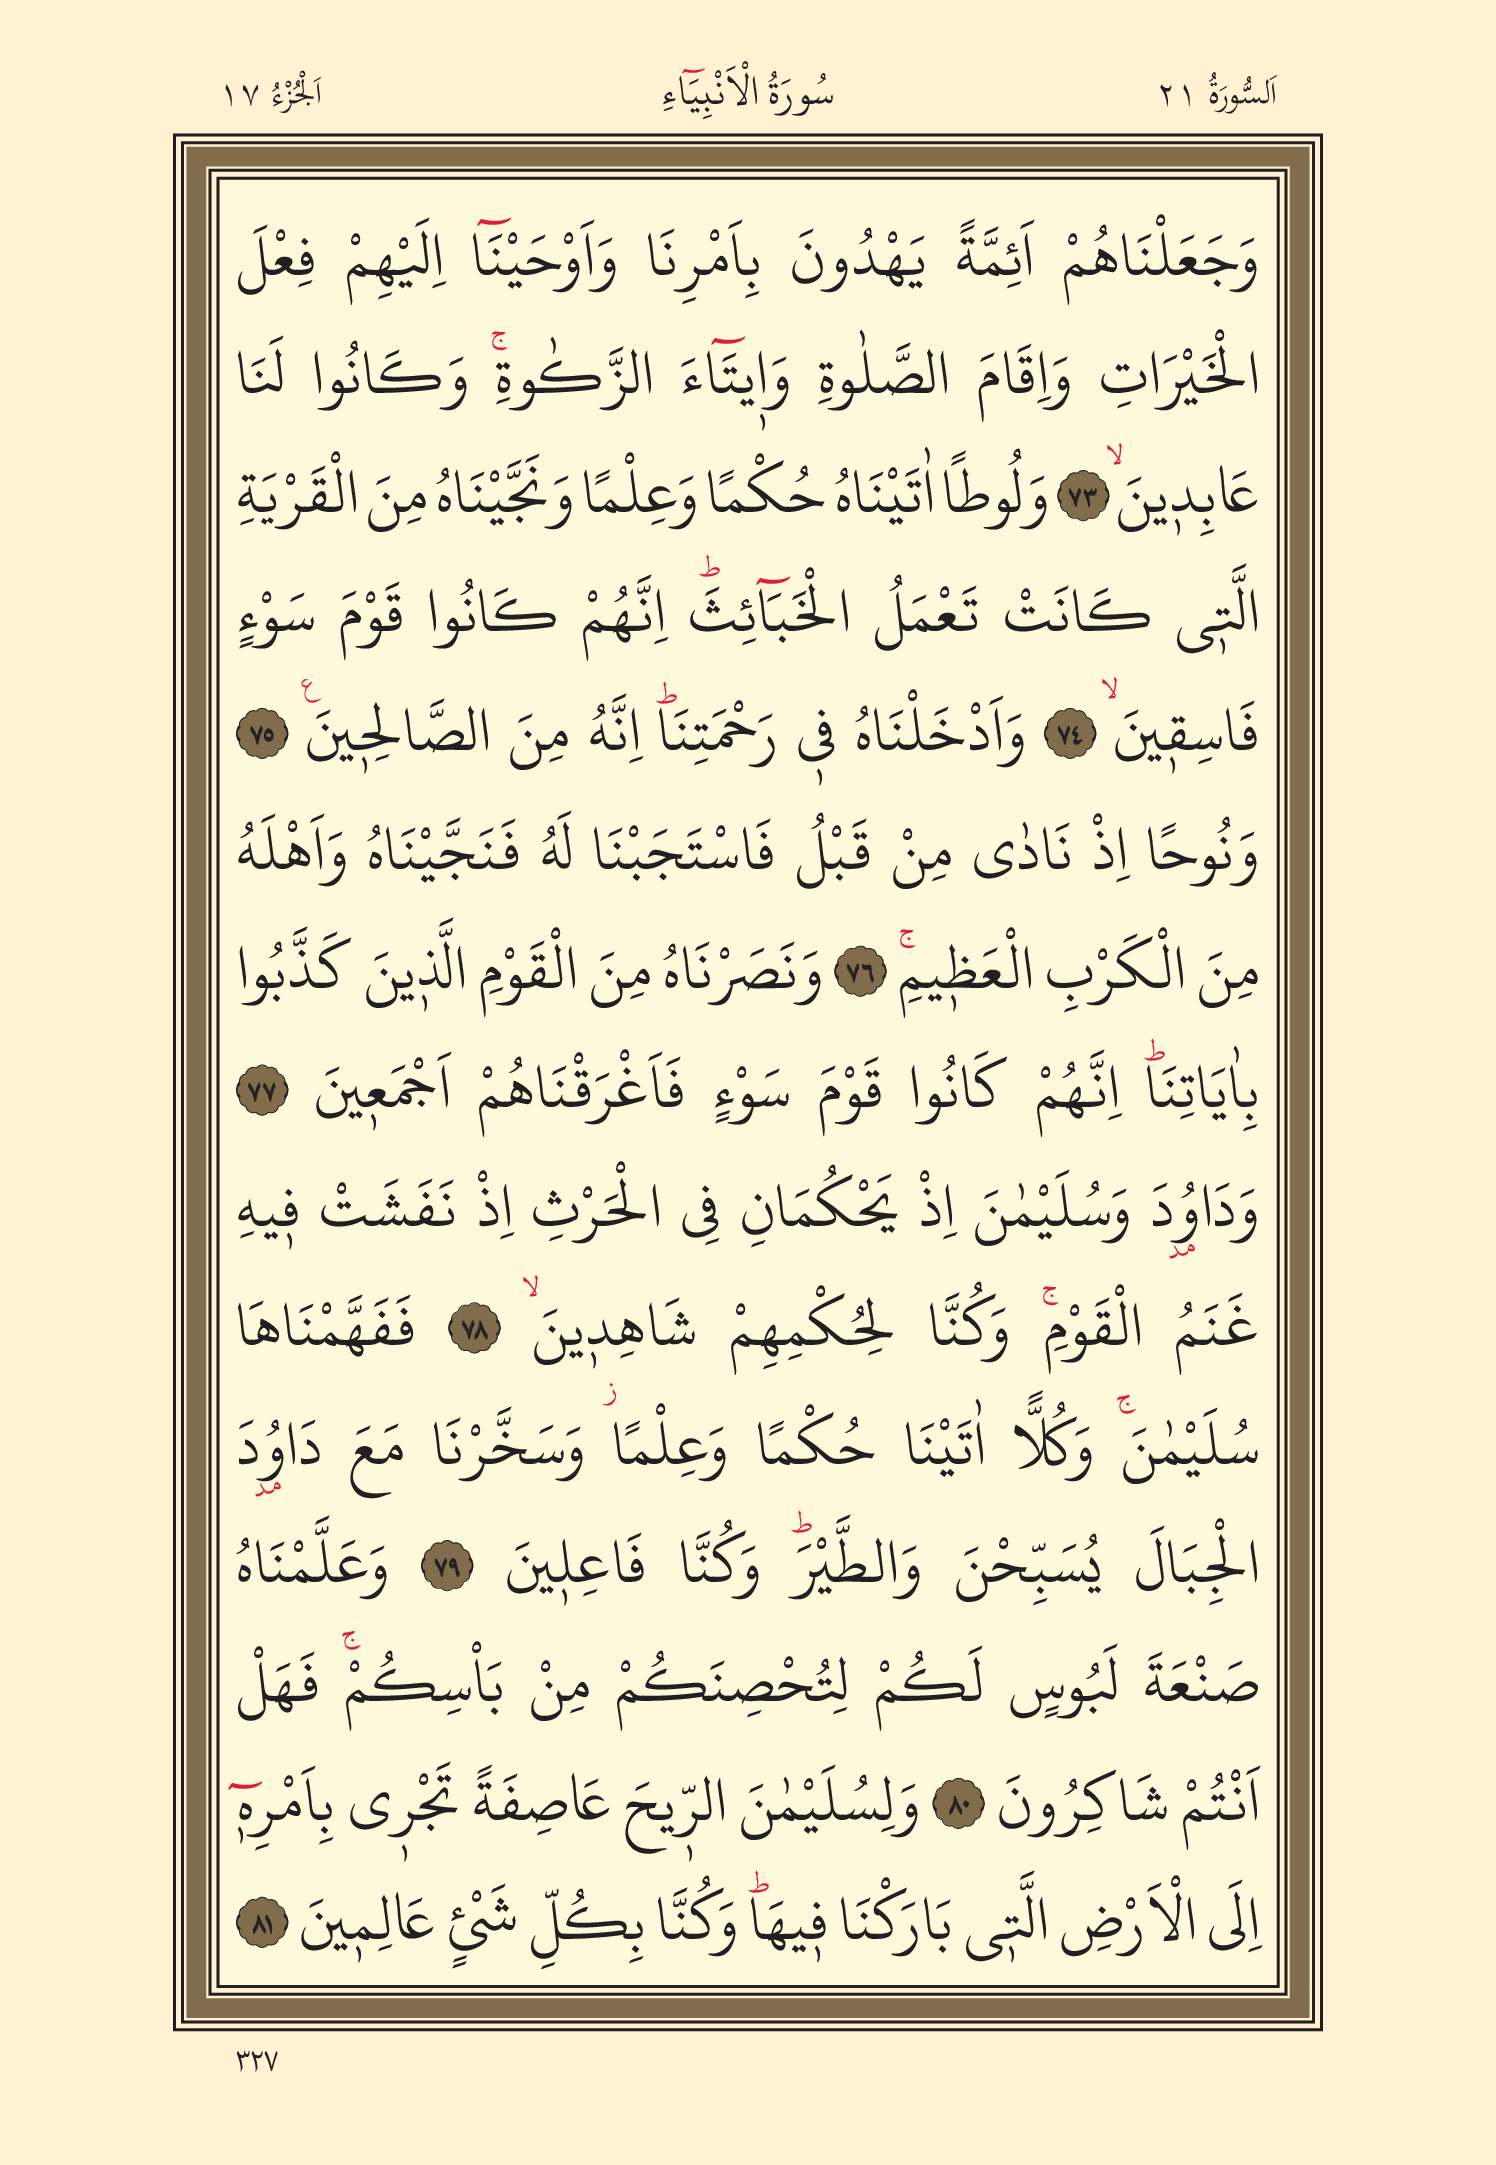 اَلسُّورَةُ ٢١ سُورَةُ الْاَنْبِيَٓاءِ اَلْجُزْءُ ١٧
وَجَعَلْنَاهُمْ اَئِمَّةً يَهْدُونَ بِاَمْرِنَا وَاَوْحَيْنَٓا اِلَيْهِمْ فِعْلَ
الْخَيْرَاتِ وَاِقَامَ الصَّلٰوةِ وَا۪يتَٓاءَ الزَّكٰوةِۚ وَكَانُوا لَنَا
عَابِد۪ينَۙ ﴿٧٣﴾ وَلُوطًا اٰتَيْنَاهُ حُكْمًا وَعِلْمًا وَنَجَّيْنَاهُ مِنَ الْقَرْيَةِ
الَّت۪ي كَانَتْ تَعْمَلُ الْخَبَٓائِثَۜ اِنَّهُمْ كَانُوا قَوْمَ سَوْءٍ
فَاسِق۪ينَۙ ﴿٧٤﴾ وَاَدْخَلْنَاهُ ف۪ي رَحْمَتِنَاۜ اِنَّهُ مِنَ الصَّالِح۪ينَ۟ ﴿٧٥﴾
وَنُوحًا اِذْ نَادٰى مِنْ قَبْلُ فَاسْتَجَبْنَا لَهُ فَنَجَّيْنَاهُ وَاَهْلَهُ
مِنَ الْكَرْبِ الْعَظ۪يمِۚ ﴿٧٦﴾ وَنَصَرْنَاهُ مِنَ الْقَوْمِ الَّذ۪ينَ كَذَّبُوا
بِاٰيَاتِنَاۜ اِنَّهُمْ كَانُوا قَوْمَ سَوْءٍ فَاَغْرَقْنَاهُمْ اَجْمَع۪ينَ ﴿٧٧﴾
وَدَاوُ۫دَ وَسُلَيْمٰنَ اِذْ يَحْكُمَانِ فِي الْحَرْثِ اِذْ نَفَشَتْ ف۪يهِ
غَنَمُ الْقَوْمِۚ وَكُنَّا لِحُكْمِهِمْ شَاهِد۪ينَۙ ﴿٧٨﴾ فَفَهَّمْنَاهَا
سُلَيْمٰنَۚ وَكُلًّا اٰتَيْنَا حُكْمًا وَعِلْمًاۘ وَسَخَّرْنَا مَعَ دَاوُ۫دَ
الْجِبَالَ يُسَبِّحْنَ وَالطَّيْرَۜ وَكُنَّا فَاعِل۪ينَ ﴿٧٩﴾ وَعَلَّمْنَاهُ
صَنْعَةَ لَبُوسٍ لَكُمْ لِتُحْصِنَكُمْ مِنْ بَاْسِكُمْۚ فَهَلْ
اَنْتُمْ شَاكِرُونَ ﴿٨٠﴾ وَلِسُلَيْمٰنَ الرّ۪يحَ عَاصِفَةً تَجْر۪ي بِاَمْرِه۪ٓ
اِلَى الْاَرْضِ الَّت۪ي بَارَكْنَا ف۪يهَاۜ وَكُنَّا بِكُلِّ شَيْءٍ عَالِم۪ينَ ﴿٨١﴾
٣٢٧